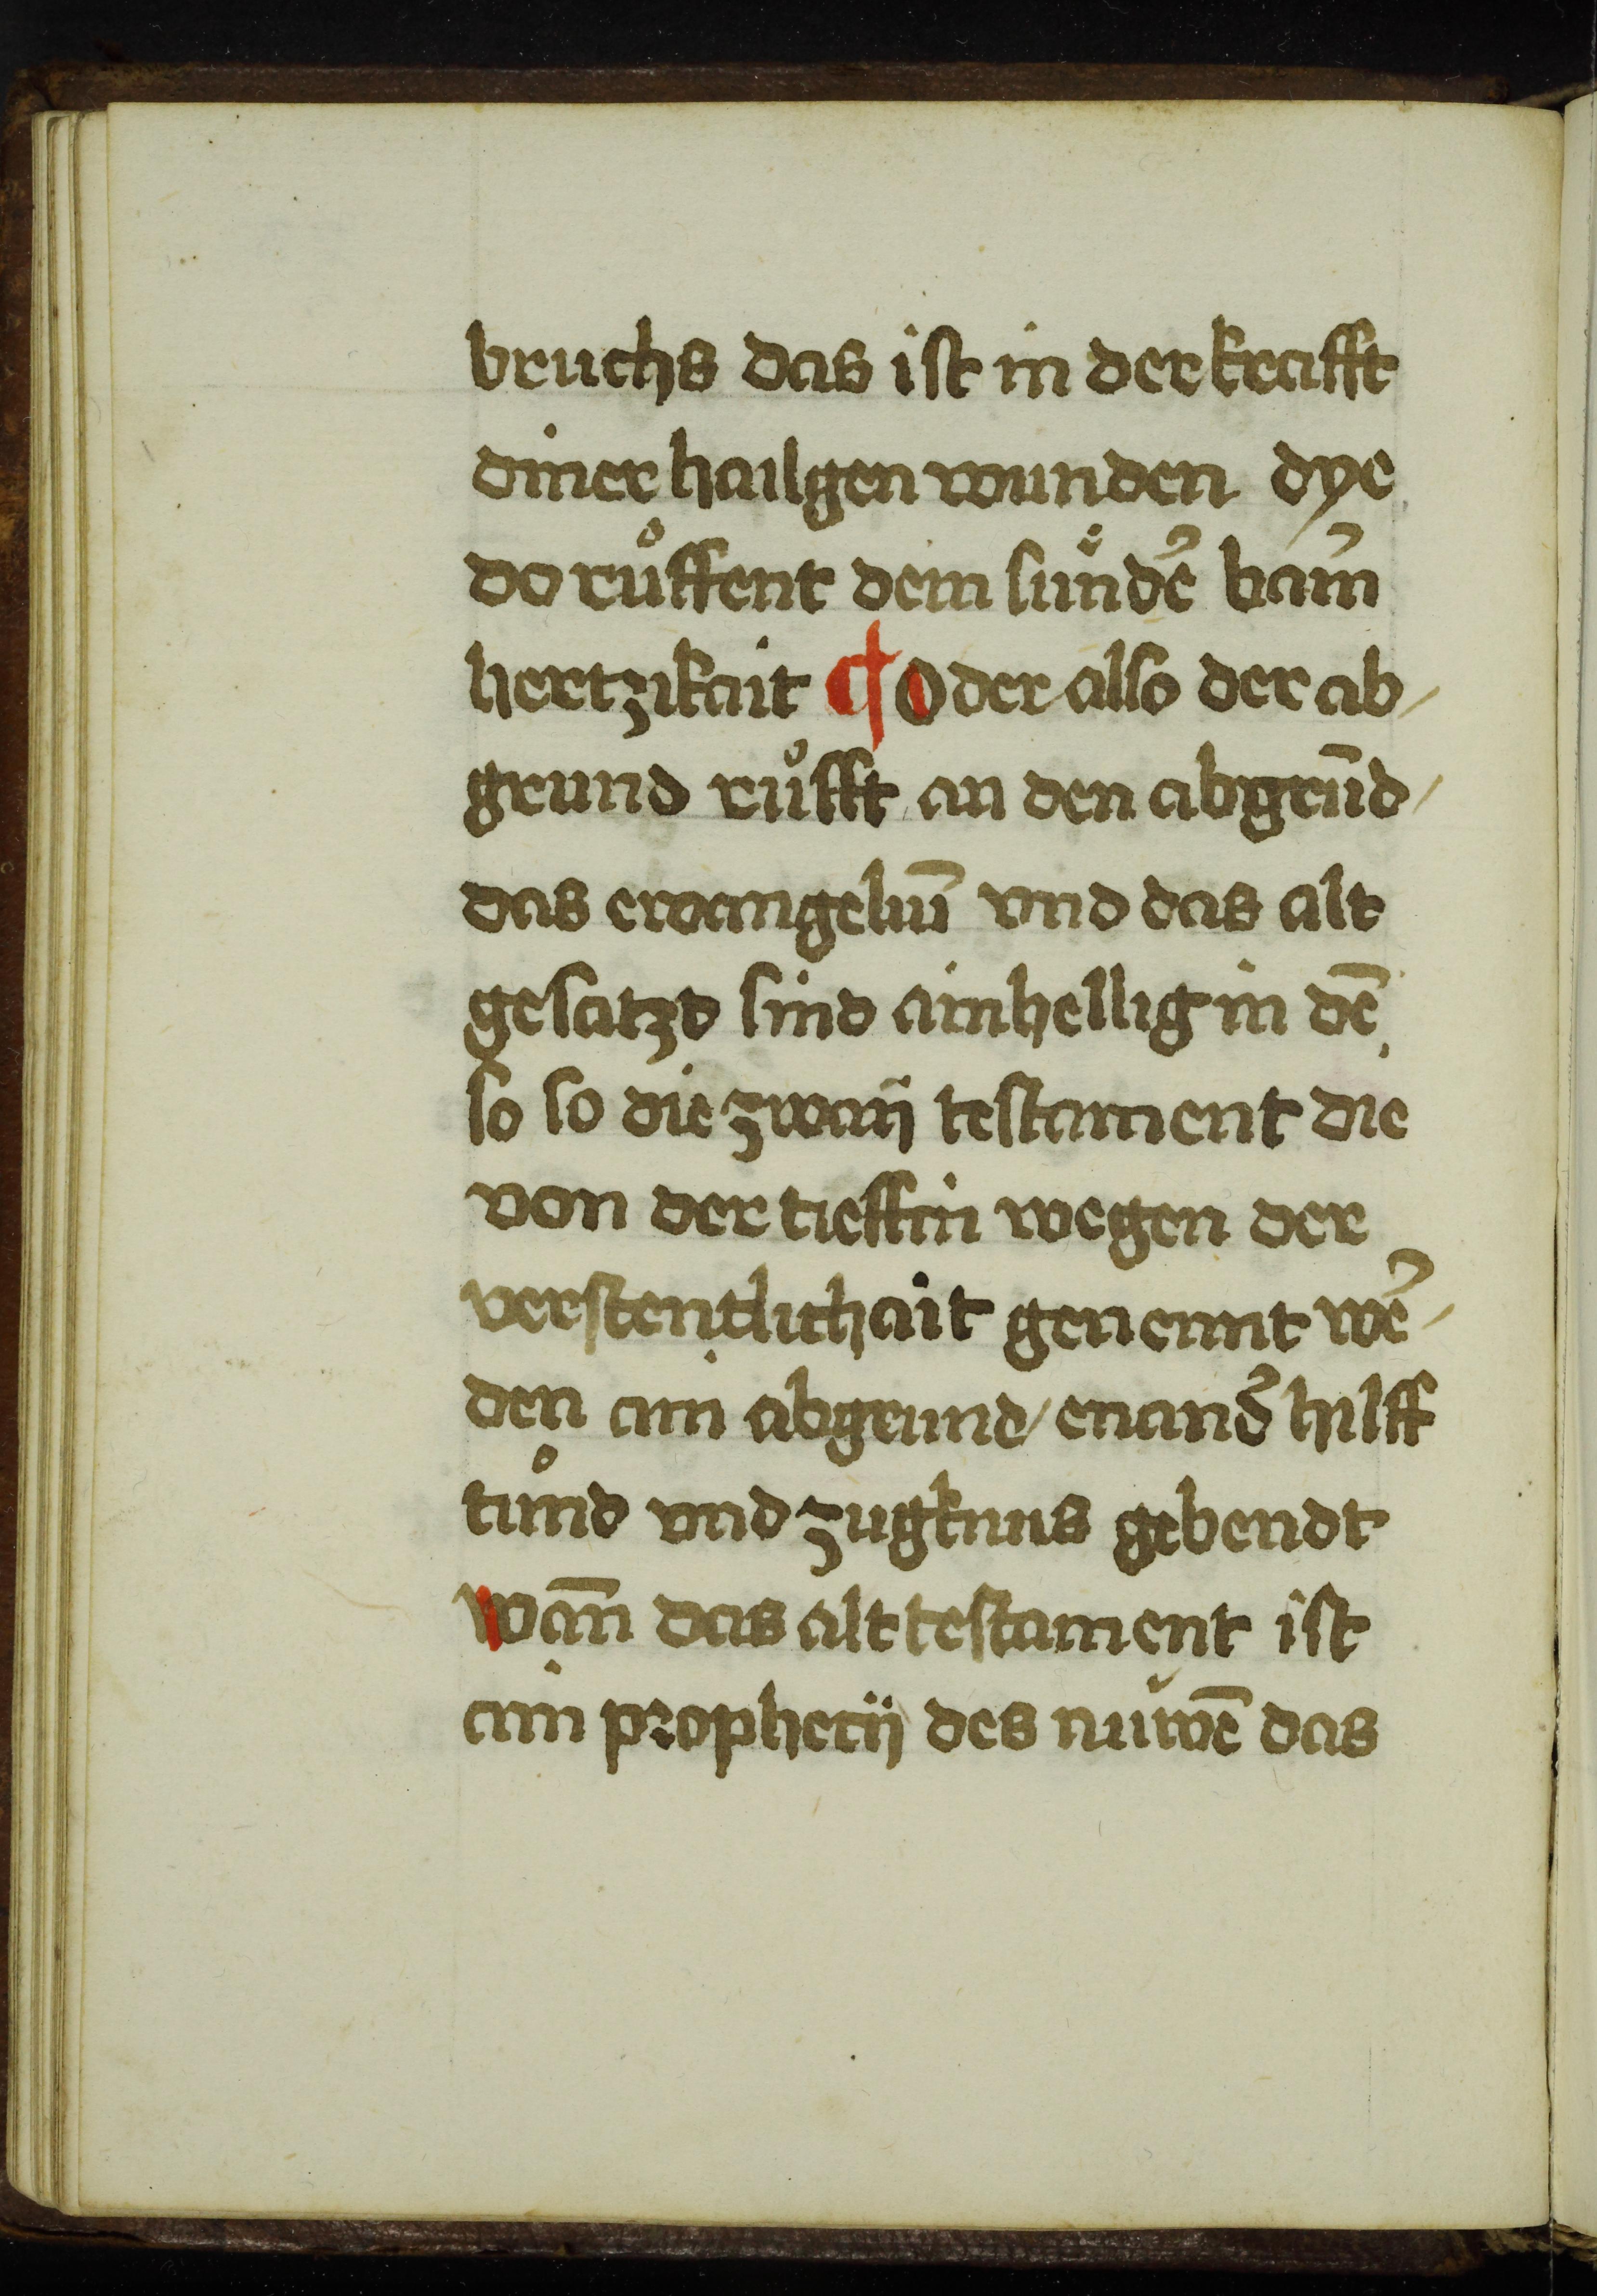 bruchs das ist in der krafft
diner hailgen wunden dye
do ruͦffent dem sünd̾e bam̾
hertzikait ¶ Oder also der ab/
grund ruͦfft an den abgrūd/
das ewangeliū vnd das alt
gesatzd sind ainhellig in dē
so so die zwaÿ testament die
von der tieffin wegen der
verstentlichait genennt we̾/
den ain abgrund/ enand̾ hilff
tuͦnd vnd zugknus gebendt
wan̄ das alt testament ist
ain prophecÿ des nuwē das